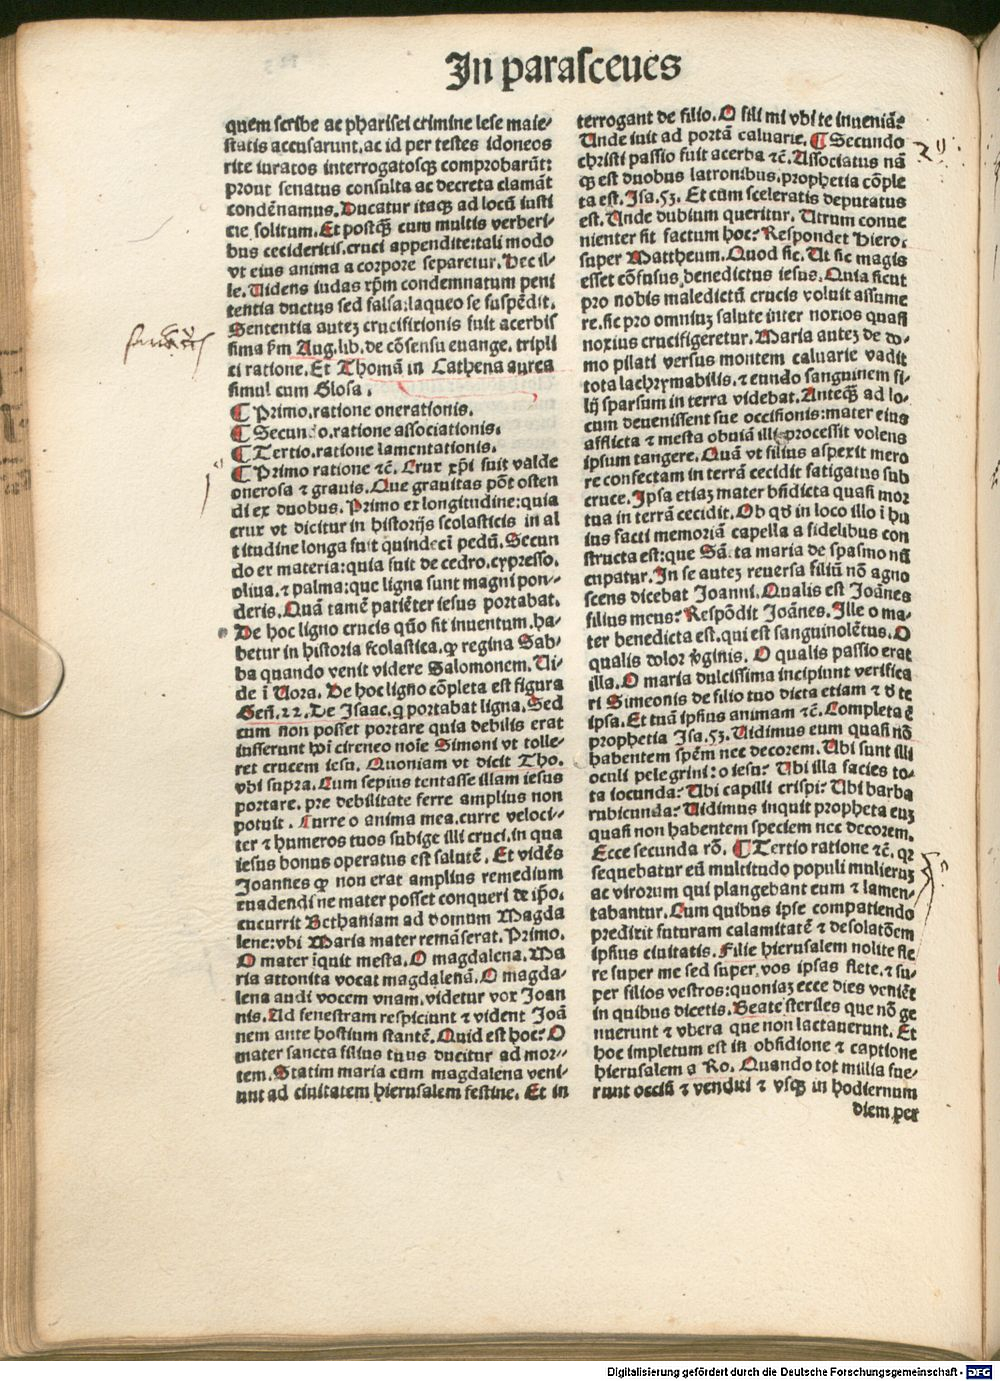 In parasceues
quem scribe ac pharisei crimine lese maie-
statis accusarunt, ac id per testes idoneos
rite iuratos interrogatosqꝫ comprobarūt:
prout senatus consulta ac decreta clamāt
condēnamus. Ducatur itaqꝫ ad locū iusti
cie solitum. Et postqꝫ̄ cum multis verberi-
bus cecideritis, cruci appendite: tali modo
vt eius anima a corpore separetur. Hec il-
le. Videns iudas xp̄m condemnatum peni
tentia ductus sed falsa: laqueo se suspēdit.
Sententia auteꝫ crucifixionis fuit acerbis
sima ẜm Aug. lib. de cōsensu euange. tripli
ci ratione. Et Thomā in Cathena aurea
simul cum Glosa.
¶ Primo. ratione onerationis.
¶ Secundo. ratione associationis.
¶ Tertio. ratione lamentationis.
¶ Primo ratione ⁊c̄. Crux xp̄i fuit valde
onerosa ⁊ grauis. Que grauitas pōt osten
di ex duobus. Primo ex longitudine: quia
crux vt dicitur in historijs scolasticis in al
titudine longa fuit quindeci pedū. Secun
do ex materia: quia fuit de cedro, cypresso,
oliua, ⁊ palma: que ligna sunt magni pon-
deris. Quā tamē patiēter iesus portabat.
De hoc ligno crucis qūo fit inuentum, ha-
betur in historia scolastica. qꝛ regina Sab-
ba quando venit videre Salomonem. Vi-
de ī Vora. De hoc ligno cōpleta est figura
Geñ. 22. De Isaac, q̇ portabat ligna. Sed
cum non posset portare quia debilis erat
insserunt hoī cireneo noīe Simoni vt tolle-
ret crucem iesu. Quoniam vt dicit Tho.
vbi supra. Cum sepius tentasse illam iesus
portare, pre debilitate ferre amplius non
potuit. Curre o anima mea, curre veloci-
ter ⁊ humeros tuos subige illi cruci, in qua
iesus bonus operatus est salutē. Et vidēs
Joannes qꝛ non erat amplius remedium
euadendi ne mater posset conqueri de ip̄o.
cucurrit Bethaniam ad domum Magda
lene: vbi Maria mater remāserat. Primo.
O mater īquit mesta. O magdalena. Ma
ria attonita vocat magdalenā. O magda-
lena audi vocem vnam, videtur vox Joan
nis. Ad fenestram respiciunt ⁊ vident Joā
nem ante hostium stantē. Quid est hoc? O
mater sancta filius tuus ducitur ad mor-
tem. Statim maria cum magdalena veni-
unt ad ciuitatem hierusalem festine. Et in
terrogant de filio. O fili mi vbi te inueniā?
Unde iuit ad portā caluarie. ¶ Secundo
christi passio fuit acerba ⁊c̄. Associatus nā
qꝫ est duobus latronibus. prophetia cōple
ta est. Isa. 53. Et cum sceleratis deputatus
est. Unde dubium queritur. Utrum conue
nienter sit factum hoc? Respondet Hiero.
super Mattheum. Quod sic. Ut sic magis
esset cōfusus, benedictus iesus. Quia sicut
pro nobis maledictū crucis voluit assume
re. sic pro omniuꝫ salute inter noxios quasi
noxius crucifigeretur. Maria auteꝫ de do-
mo pilati versus montem caluarie vadit
tota lachrymabilis, ⁊ eundo sanguinem fi-
lij sparsum in terra videbat. Anteqꝫ̄ ad lo-
cum deuenissent sue occisionis: mater eius
afflicta ⁊ mesta obuiā illi processit volens
ipsum tangere. Quā vt filius aspexit mero
re confectam in terrā cecidit fatigatus sub
cruce. Ipsa etiaꝫ mater bn̄dicta quasi mor
tua in terrā cecidit. Ob qd̄ in loco illo ī hu
ius facti memoriā capella a fidelibus con
structa est: que Sācta maria de spasmo nū
cupatur. In se auteꝫ reuersa filiū nō agno
scens dicebat Joanni. Qualis est Joānes
filius meus? Respōdit Joānes. Ille o ma-
ter benedicta est, qui est sanguinolētus. O
qualis dolor v̄ginis. O qualis passio erat
illa. O maria dulcissima incipiunt verifica
ri Simeonis de filio tuo dicta etiam ⁊ d̄ te
ipsa. Et tuā ipsius animam ⁊c̄. Completa ē
prophetia Isa. 53. Vidimus eum quasi nō
habentem spēm nec decorem. Ubi sunt illi
oculi pelegrini: o iesu? Ubi illa facies to-
ta iocunda? Ubi capilli crispi? Ubi barba
rubicunda? Vidimus inquit propheta euꝫ
quasi non habentem speciem nec decorem.
Ecce secunda rō. ¶ Tertio ratione ⁊c̄. qꝛ
sequebatur eū multitudo populi mulieruꝫ
ac virorum qui plangebant eum ⁊ lamen-
tabantur. Cum quibus ipse compatiendo
predixit futuram calamitatē ⁊ desolatōem
ipsius ciuitatis. Filie hierusalem nolite fle
re super me sed super vos ipsas flete, ⁊ su-
per filios vestros: quoniaꝫ ecce dies veniēt
in quibus dicetis. Beate steriles que nō ge
nuerunt ⁊ vbera que non lactauerunt. Et
hoc impletum est in obsidione ⁊ captione
hierusalem a Ro. Quando tot milia fue-
runt occisi ⁊ venditi ⁊ vsqꝫ in hodiernum
diem per
Digitalisierung gefördert durch die Deutsche Forschungsgemeinschaft - DFG